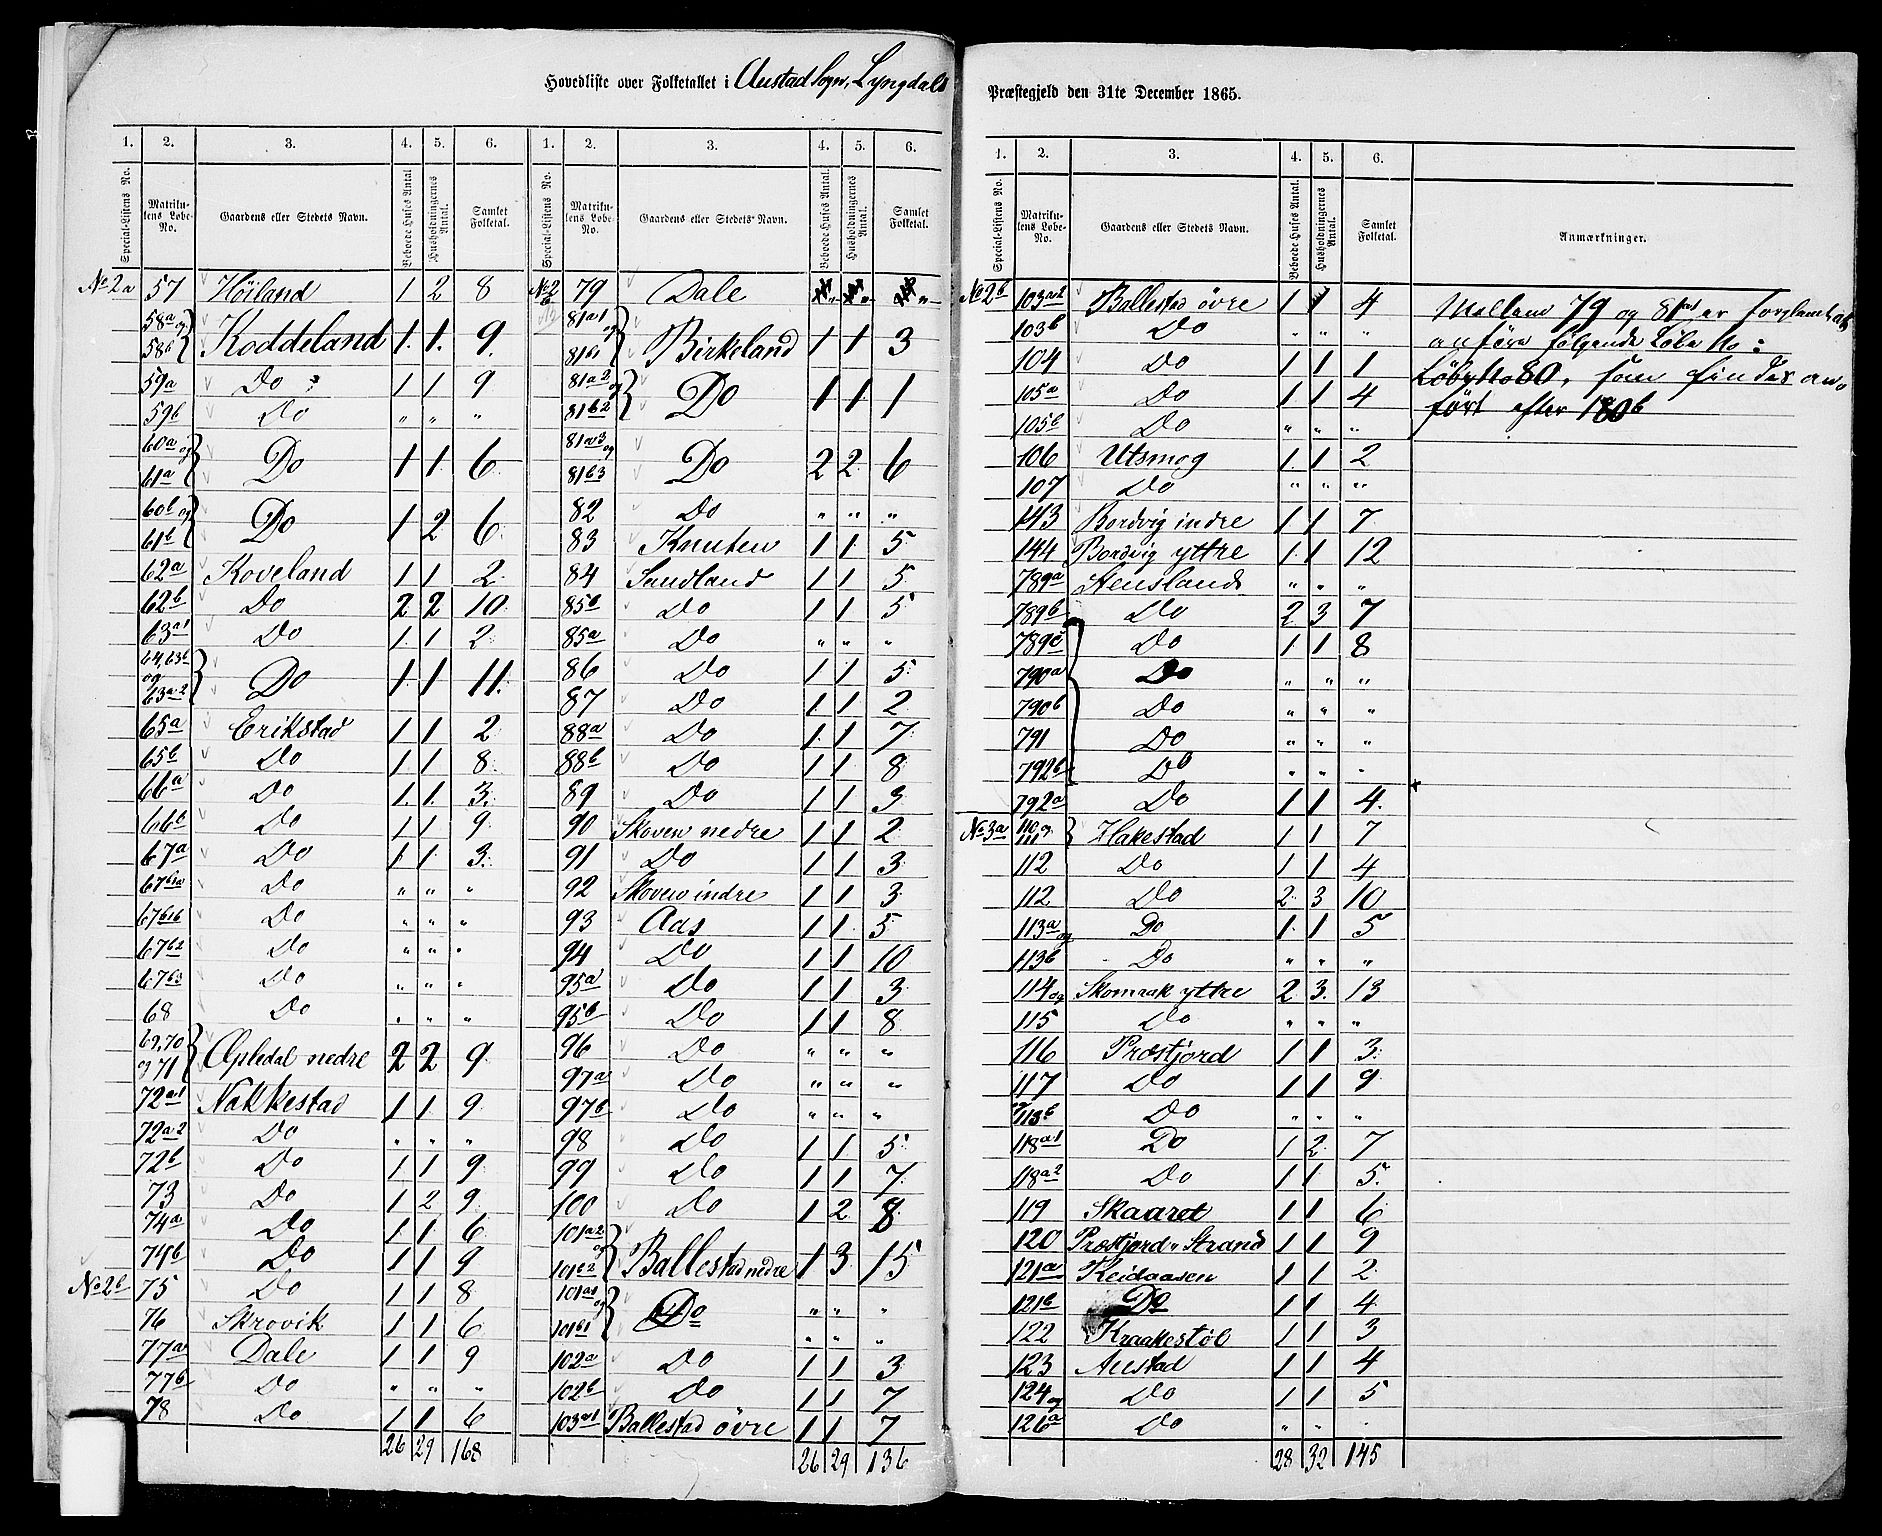 Hovedliste over Folketallet i Austad Sogn, Lyngdals
Præstegjeld den 31te December 1865.
1. 2. 3. 4. 5. 6. 1. 2. 3. 4. 5. 6.
Special-Listens No. Matrikulens Løbe-No. Gaardens eller Stedets Navn. Beboede Huses Antal Husholdningernes Antal. Samlet Folketal. Special-Listens No. Matrikulens Løbe-No. Gaardens eller Stedets Navn. Beboede Huses Antal. Husholdningernes Antal. Samlet Folketal.
No 2a 57 Höiland 1 2 8
58a og 58b Koddeland 1 1 9
59a Do 1 1 9
59b Do " " "
60a og 61a Do 1 1 6
60b og 61b Do 1 2 6
62a Koveland 1 1 2
62b Do 2 2 10
63a1 Do 1 1 2
64, 63b og 63a2 Do 1 1 11
65a Erikstad 1 1 2
65b Do 1 1 8
66a Do 1 1 3
66b Do 1 1 9
67a Do 1 1 3
67b1a Do " " "
67b1b Do " " "
67b2 Do " " "
67b3 Do " " "
68 Do " " "
69, 70 og 71 Opledal nedre 2 2 9
72a1 Nakkestad 1 1 9
72a2 Do " " "
72b Do 1 1 9
73 Do 1 2 9
74a Do 1 1 6
74b Do 1 1 9
No 2b 75 Do 1 1 8
76 Skrovik 1 1 6
77a Dale 1 1 9
77b Do " " "
78 Do 1 1 6
26 29 168
No 2b 79 Dale " " "
81a1 og 81b1 Birkeland 1 1 3
81a2 og 81b2 Do 1 1 1
81a3 og 81b3 Do 2 2 6
82 Do " " "
83 Knuten 1 1 5
84 Sandland 1 1 5
85b Do 1 1 5
85a Do " " "
86 Do 1 1 5
87 Do 1 1 2
88a Do 1 1 7
88b Do 1 1 8
89 Do 1 1 3
90 Skoven nedre 1 1 2
91 Do 1 1 3
92 Skoven indre 1 1 3
93 Aas 1 1 5
94 Do 1 1 10
95a Do 1 1 3
95b Do 1 1 8
96 Do " " "
97a Do " " "
97b Do " " "
98 Do 1 1 5
99 Do 1 1 7
100 Do 1 2 8
101a2 og 101b2 Ballestad nedre 1 3 15
101a1 og 101b1 Do " " "
" " "
102a Do 1 1 3
102b Do 1 1 7
103a1 Ballestad övre 1 1 7
26 29 136
1. 2. 3. 4. 5. 6.
Special-Listens No. Matrikulens Løbe-No. Gaardens eller Stedets Navn. Beboede Huses Antal. Husholdningernes Antal. Samlet Folketal. Anmærkninger.
No 2b 103a2 Ballestad övre 1 1 4
103b Do " " "
104 Do 1 1 1
105a Do 1 1 4
105b Do " " "
106 Utsmog 1 1 2
107 Do " " "
143 Bordvig indre 1 1 7
144 Bordvig yttre 1 1 12
789a Stensland " " "
789b Do 2 3 7
789c Do 1 1 8
790a Do " " "
790b Do " " "
791 Do " " "
792b Do " " "
792a Do 1 1 4
No 3a 110 og 111 Hakestad 1 1 7
112 Do 1 1 4
112 Do 2 3 10
113a og Do 1 1 5
113b Do " " "
114 og Skomrak yttre 2 3 13
115 Do " " "
116 Præstjord 1 1 3
117 Do 1 1 9
Do " " "
118a1 Do 1 2 7
118a2 Do 1 1 5
119 Skaaret 1 1 6
120 Præstjord Strand 1 1 9
121a Reidaasen 1 1 2
121b Do 1 1 4
122 Kraakestöl 1 1 3
123 Austad 1 1 4
124 og Do 1 1 5
126a Do " " "
28 32 145
Mellem 79 og 81a1 er forglemt at
anföre fölgende Löbe No:
LöbeNo 80, som findes an-
fört efter 180b